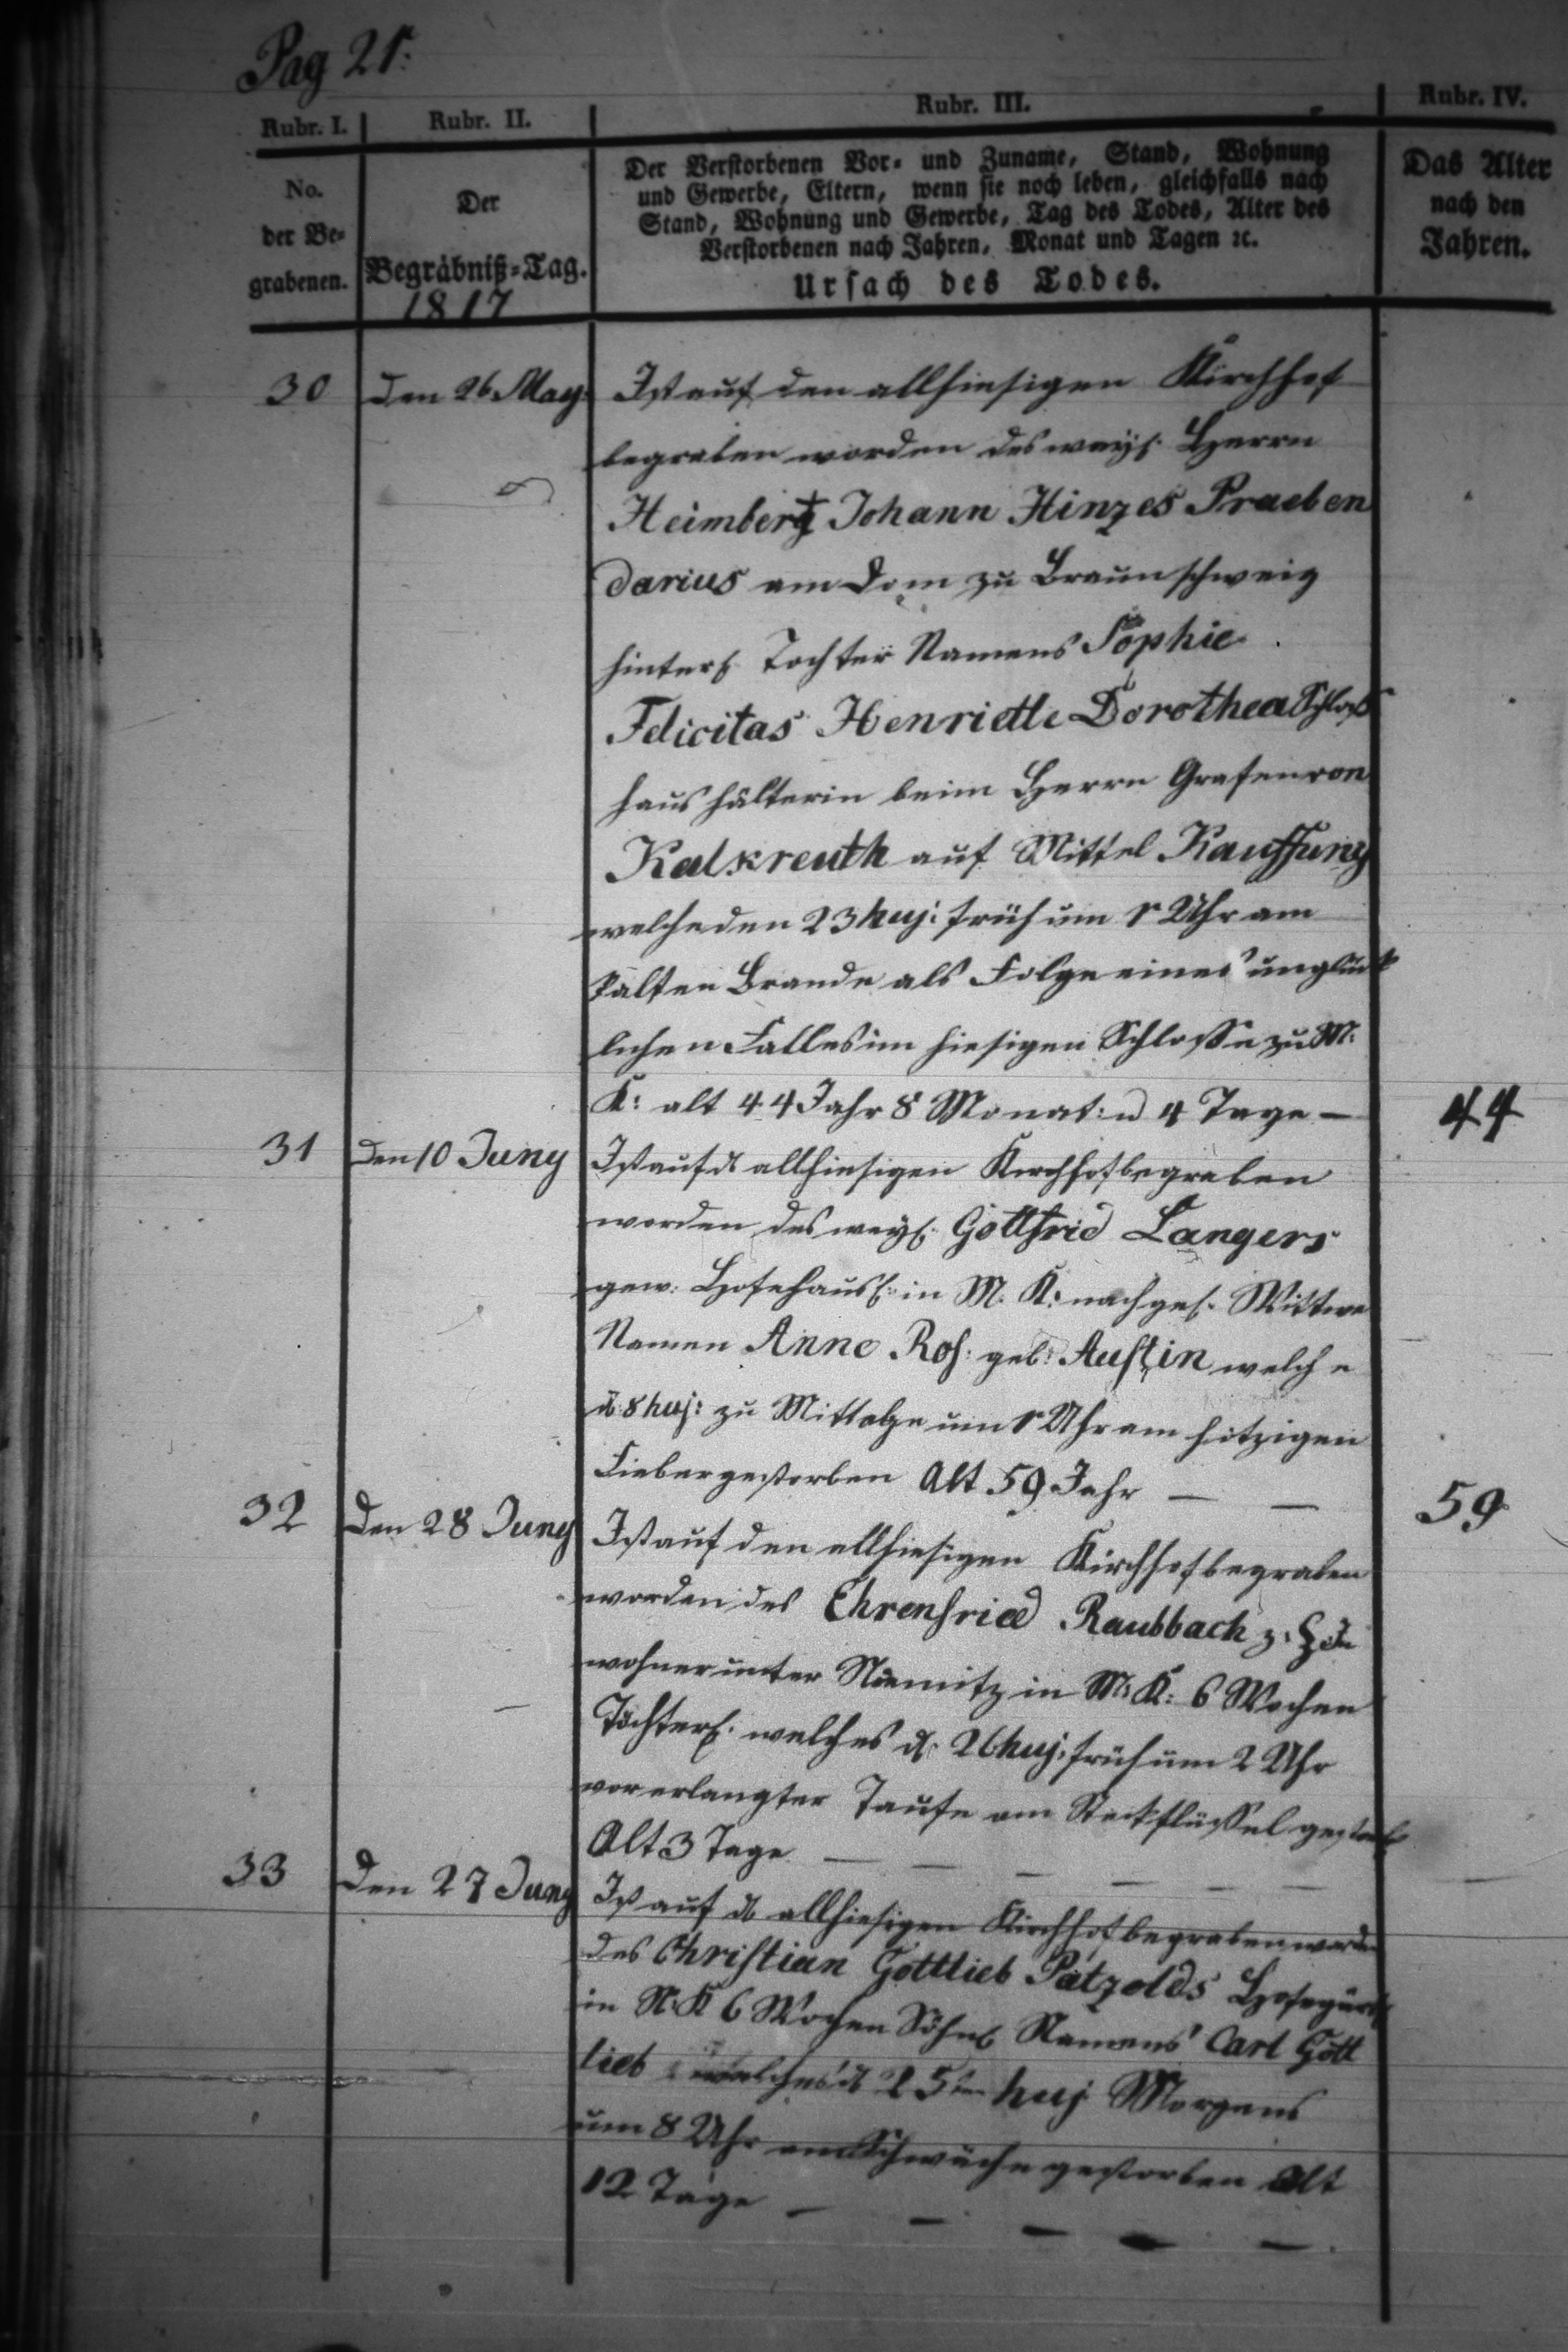 Pag 21.
Rubr. I. Rubr. II. Rubr. III. Rubr. IV.
No. der Be-grabenen.
Der Begräbniß-Tag.
1817
Der Verstorbenen Vor- und Zuname, Stand, Wohnung
und Gewerbe, Eltern, wenn sie noch leben, gleichfalls nach
Stand, Wohnung und Gewerbe, Tag des Todes, Alter des
Verstorbenen nach Jahren, Monat und Tagen ꝛc.
Ursach des Todes.
Das Alter
nach den
Jahren.
30 Den 26 May. Ist auf den allhiesigen Kirchhof
begraben worden des weyl. Herrn
Heimbert Johann Hinzes Praeben
darius am Dom zu Braunschweig
hinterl. Tochter Namens Sophie
Felicitas Henriette Dorothea Schloß
haushälterin beim Herrn Grafen von
Kalkreuth auf Mittel Kauffung
welche den 23 huj: früh um 1 Uhr am
kalten Brande als Folge eines unglück
lichen Falles im hiesigen Schlosse zu M.
K: alt 44 Jahr 8 Monat: u 4 Tage — 44
31 Den 10 Juny Ist auf d. allhiesigen Kirchhof begraben
worden des weyl. Gottfried Langers
gew. Hofehäusl: in M. K: nachgel. Wittwe
Namen Anne Ros: geb: Austin welche
d. 8 huj: zu Mittage um 1 Uhr am hitzigen
Fieber gestorben Alt 59 Jahr — — 59
32 Den 28 Juny Ist auf den allhiesigen Kirchhof begraben
worden des Ehrenfried Raubbach
wohner unter in M: K: 6 Wochen
Töchterl. welches d. 26 huj: früh um 2 Uhr
vor erlangter Taufe am Steckflüssel gestorb
Alt 3 Tage — — — — — —
33 Den 27 Juny Ist auf d. allhiesigen Kirchhof begraben worden
des Christian Gottlieb Pätzolds Hofegärtl
in N. K 6 Wochen Söhnl Namens Carl Gott
lieb welches d 25ten huj Morgens
um 8 Uhr an Schwäche gestorben Alt
12 Tage — — — — —